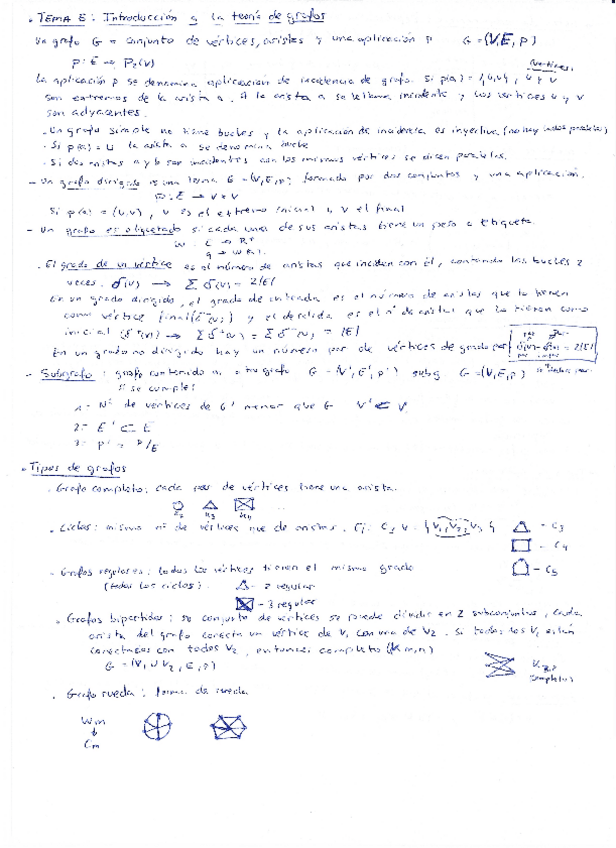 . TEMA E: Introducción a la teoría de grafos
Un grafo G = conjunto de vértices, aristas y una aplicación si G=(V,E,p)
p: E → P2(V)
vértices.
La aplicación p se denomina aplicación de incidencia de grafo. Si p(a) = {u,v}, u y v
son extremos de la arista a. A la arista a se le llama incidente y los vértices u y v
son adyacentes.
. Un grafo simple no tiene bucles y la aplicación de incidencia es inyectiva (no hay lados paralelos)
. Si p(a) = u la arista a se denomina bucle
. Si dos aristas a y b son incidentes con los mismos vértices se dicen paralelas.
- Un grafo dirigido es una terna G = (V,E,p) formada por dos conjuntos y una aplicación.
p: E → V×V
Si p(a) = (u,v), u es el extremo inicial y v el final
- Un grafo es etiquetado si cada una de sus aristas tiene un peso o etiqueta
w: E → R+
. El grado de un vértice es el número de aristas que inciden con él, contando los bucles 2
veces. δ(v) → Σ δ(v) = 2|E|
En un grado dirigido, el grado de entrada es el número de aristas que lo tienen
como vértice final y el de salida es el nº de aristas que lo tienen como
inicial → = |E|
En un grado no dirigido hay un número par de vértices de grado
- Subgrafo: grafo contenido en otro grafo G=(V',E',p') subg G=(V,E,p)
si se cumple:
1= Nº de vértices de G' menor que G V' ⊂ V
2= E' ⊂ E
3= p' = p/E
. Tipos de grafos
. Grafo completo: cada par de vértices tiene una arista.
K2 K3 K4
. Ciclos: mismo nº de vértices que de aristas. C3 {V1, V2, V3} - C3
- C4
- C5
- Grafos regulares: todos los vértices tienen el mismo grado
(todos los ciclos). - 2 regular
- 3 regular
. Grafos bipartidos: se conjunto de vértices se puede dividir en 2 subconjuntos, cada
arista del grafo conecta un vértice de V1 con una de V2. Si todos los V1 están
conectados con todos V2, entonces completo (Km,n)
G = (V1 ∪ V2, E, p)
completos
. Grafo rueda: forma de rueda
Wm
↓
Cm